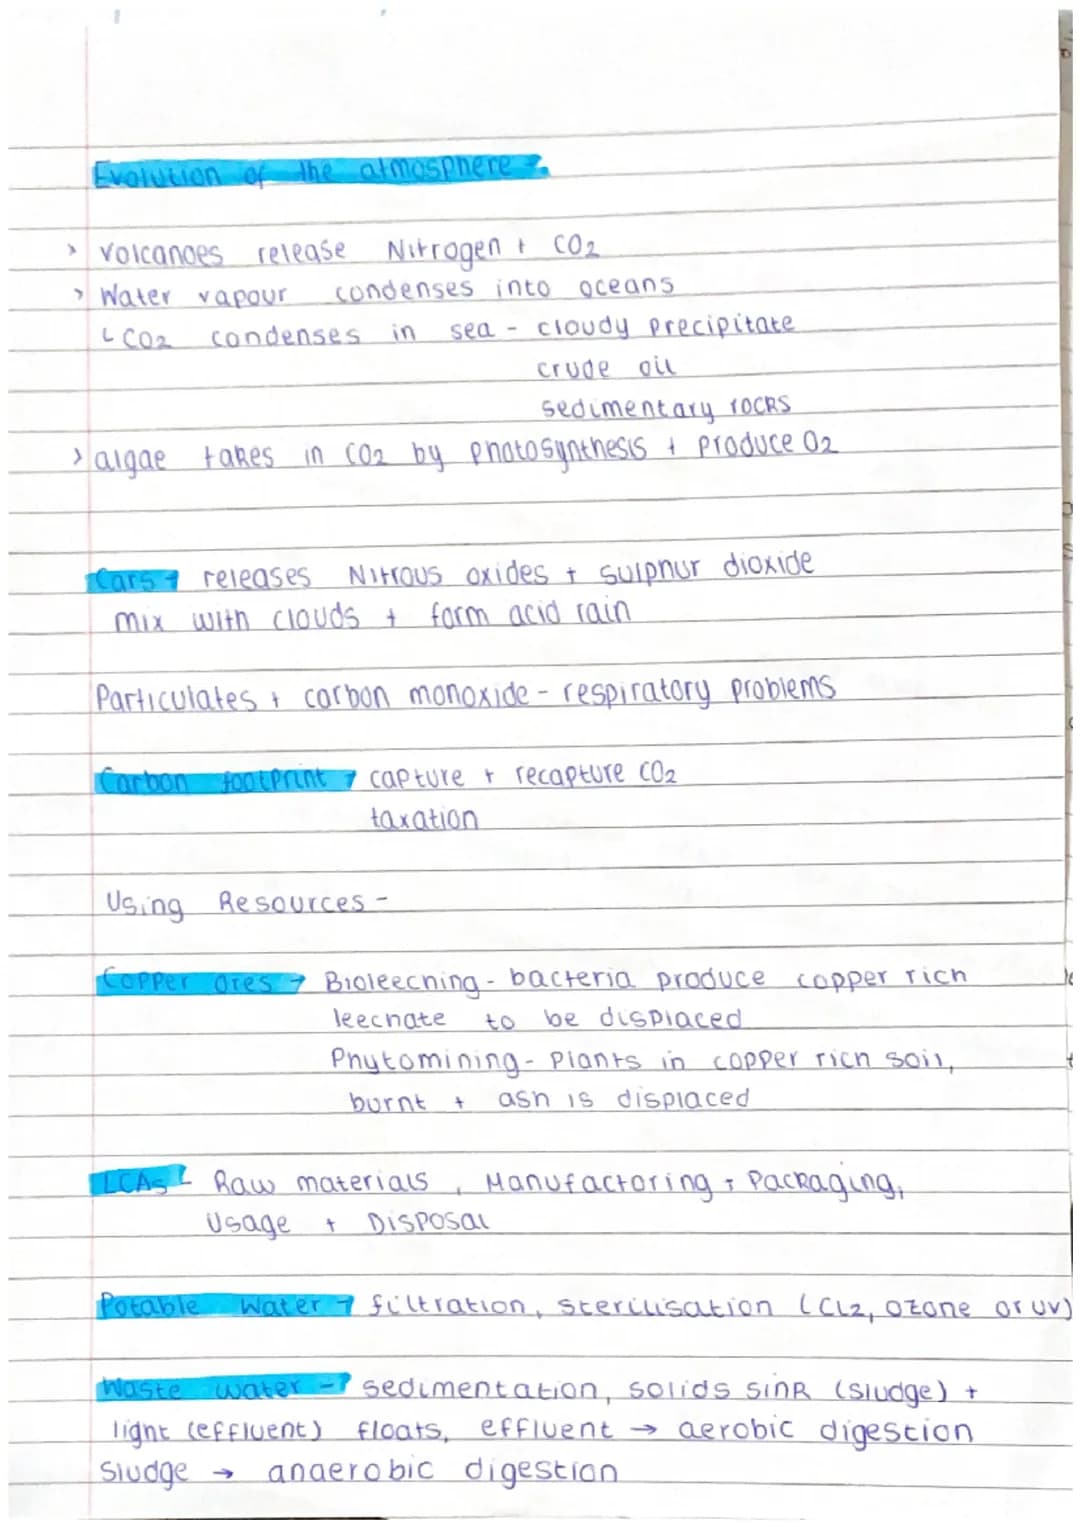 Evolution of the atmosphere →
> volcanoes release Nitrogen + CO2
> Water vapour condenses into oceans
↳ CO2 condenses in sea - cloudy precipitate
crude oil
sedimentary rocks
> algae takes in CO2 by photosynthesis + produce O2
Cars → releases Nitrous oxides + sulphur dioxide
mix with clouds + form acid rain
Particulates + carbon monoxide - respiratory problems
Carbon footprint → capture + recapture CO2
taxation
Using Resources -
Copper ores → Bioleeching - bacteria produce copper rich
leechate to be displaced
Phytomining - Plants in copper rich soil,
burnt + ash is displaced
LCAs ↳ Raw materials, Manufactoring + Packaging,
Usage + Disposal
Potable Water → filtration, sterilisation (Cl2, ozone or UV)
Waste water → sedimentation, solids sink (sludge) +
light (effluent) floats, effluent → aerobic digestion
Sludge → anaerobic digestion